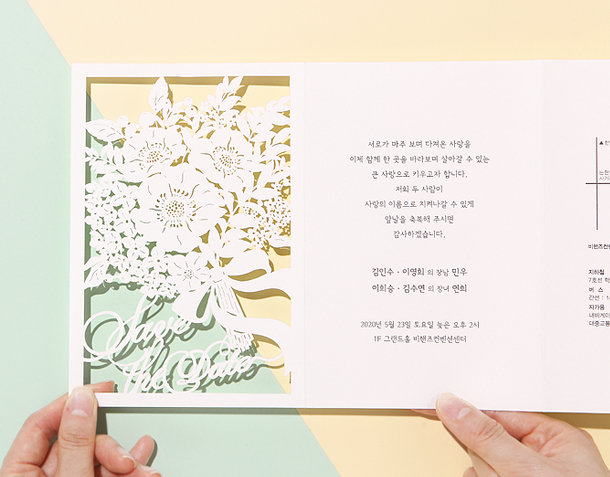 Save
the Date
서로가 마주 보며 다져온 사랑을
이제 함께 한 곳을 바라보며 살아갈 수 있는
큰 사랑으로 키우고자 합니다.
저희 두 사람이
사랑의 이름으로 지켜나갈 수 있게
앞날을 축복해 주시면
감사하겠습니다.
김인수 · 이영희 의 장남 민우
이희승 · 김수연 의 장녀 연희
2020년 5월 23일 토요일 늦은 오후 2시
1F 그랜드홀 비핸즈컨벤션센터
비핸즈컨벤
지하철
7호선 학
버 스
간선 : 1
자가용
내비게이
대중교통